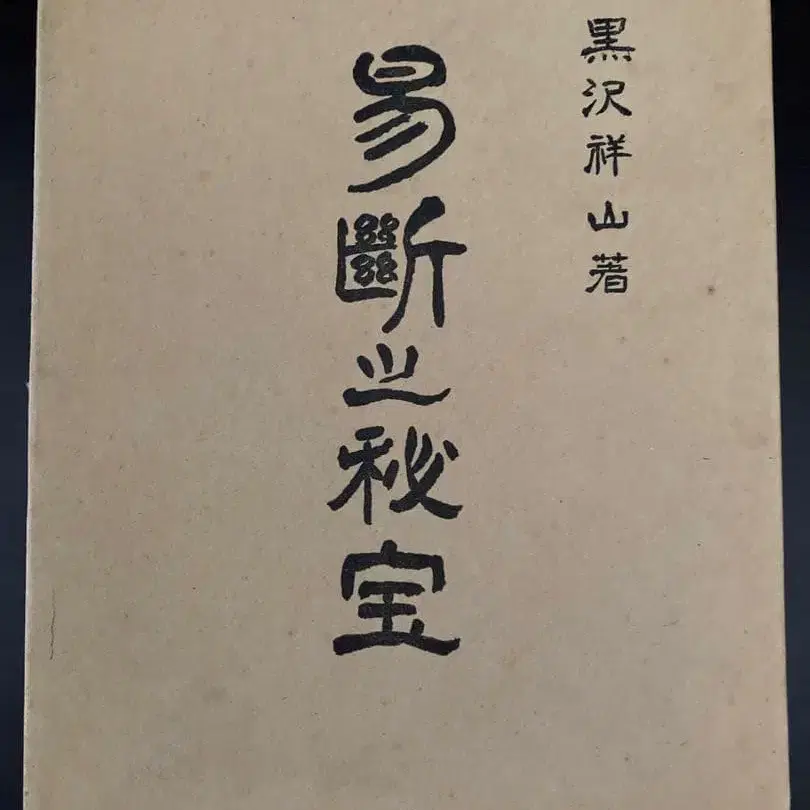 黒沢祥山著
易斷之秘宝